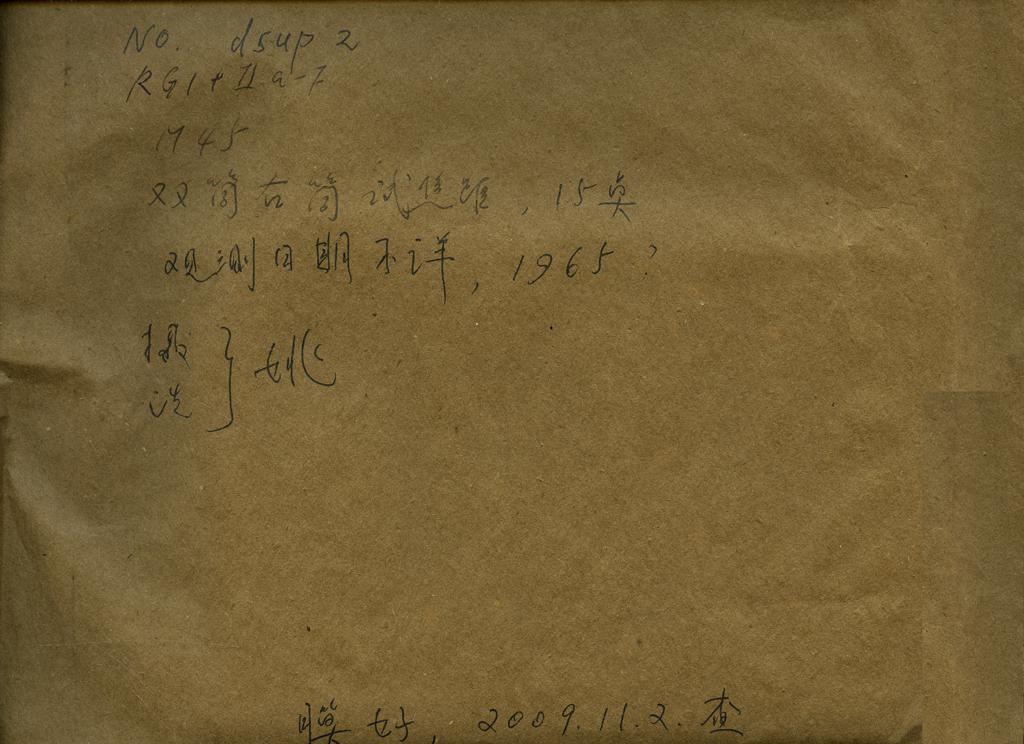 No. dsup 2
RG1+IIa-F
M45
双筒右筒试焦距, 15点
观测日期不详, 1965?
摄 } 姚
洗
好, 2009.11.2. 查